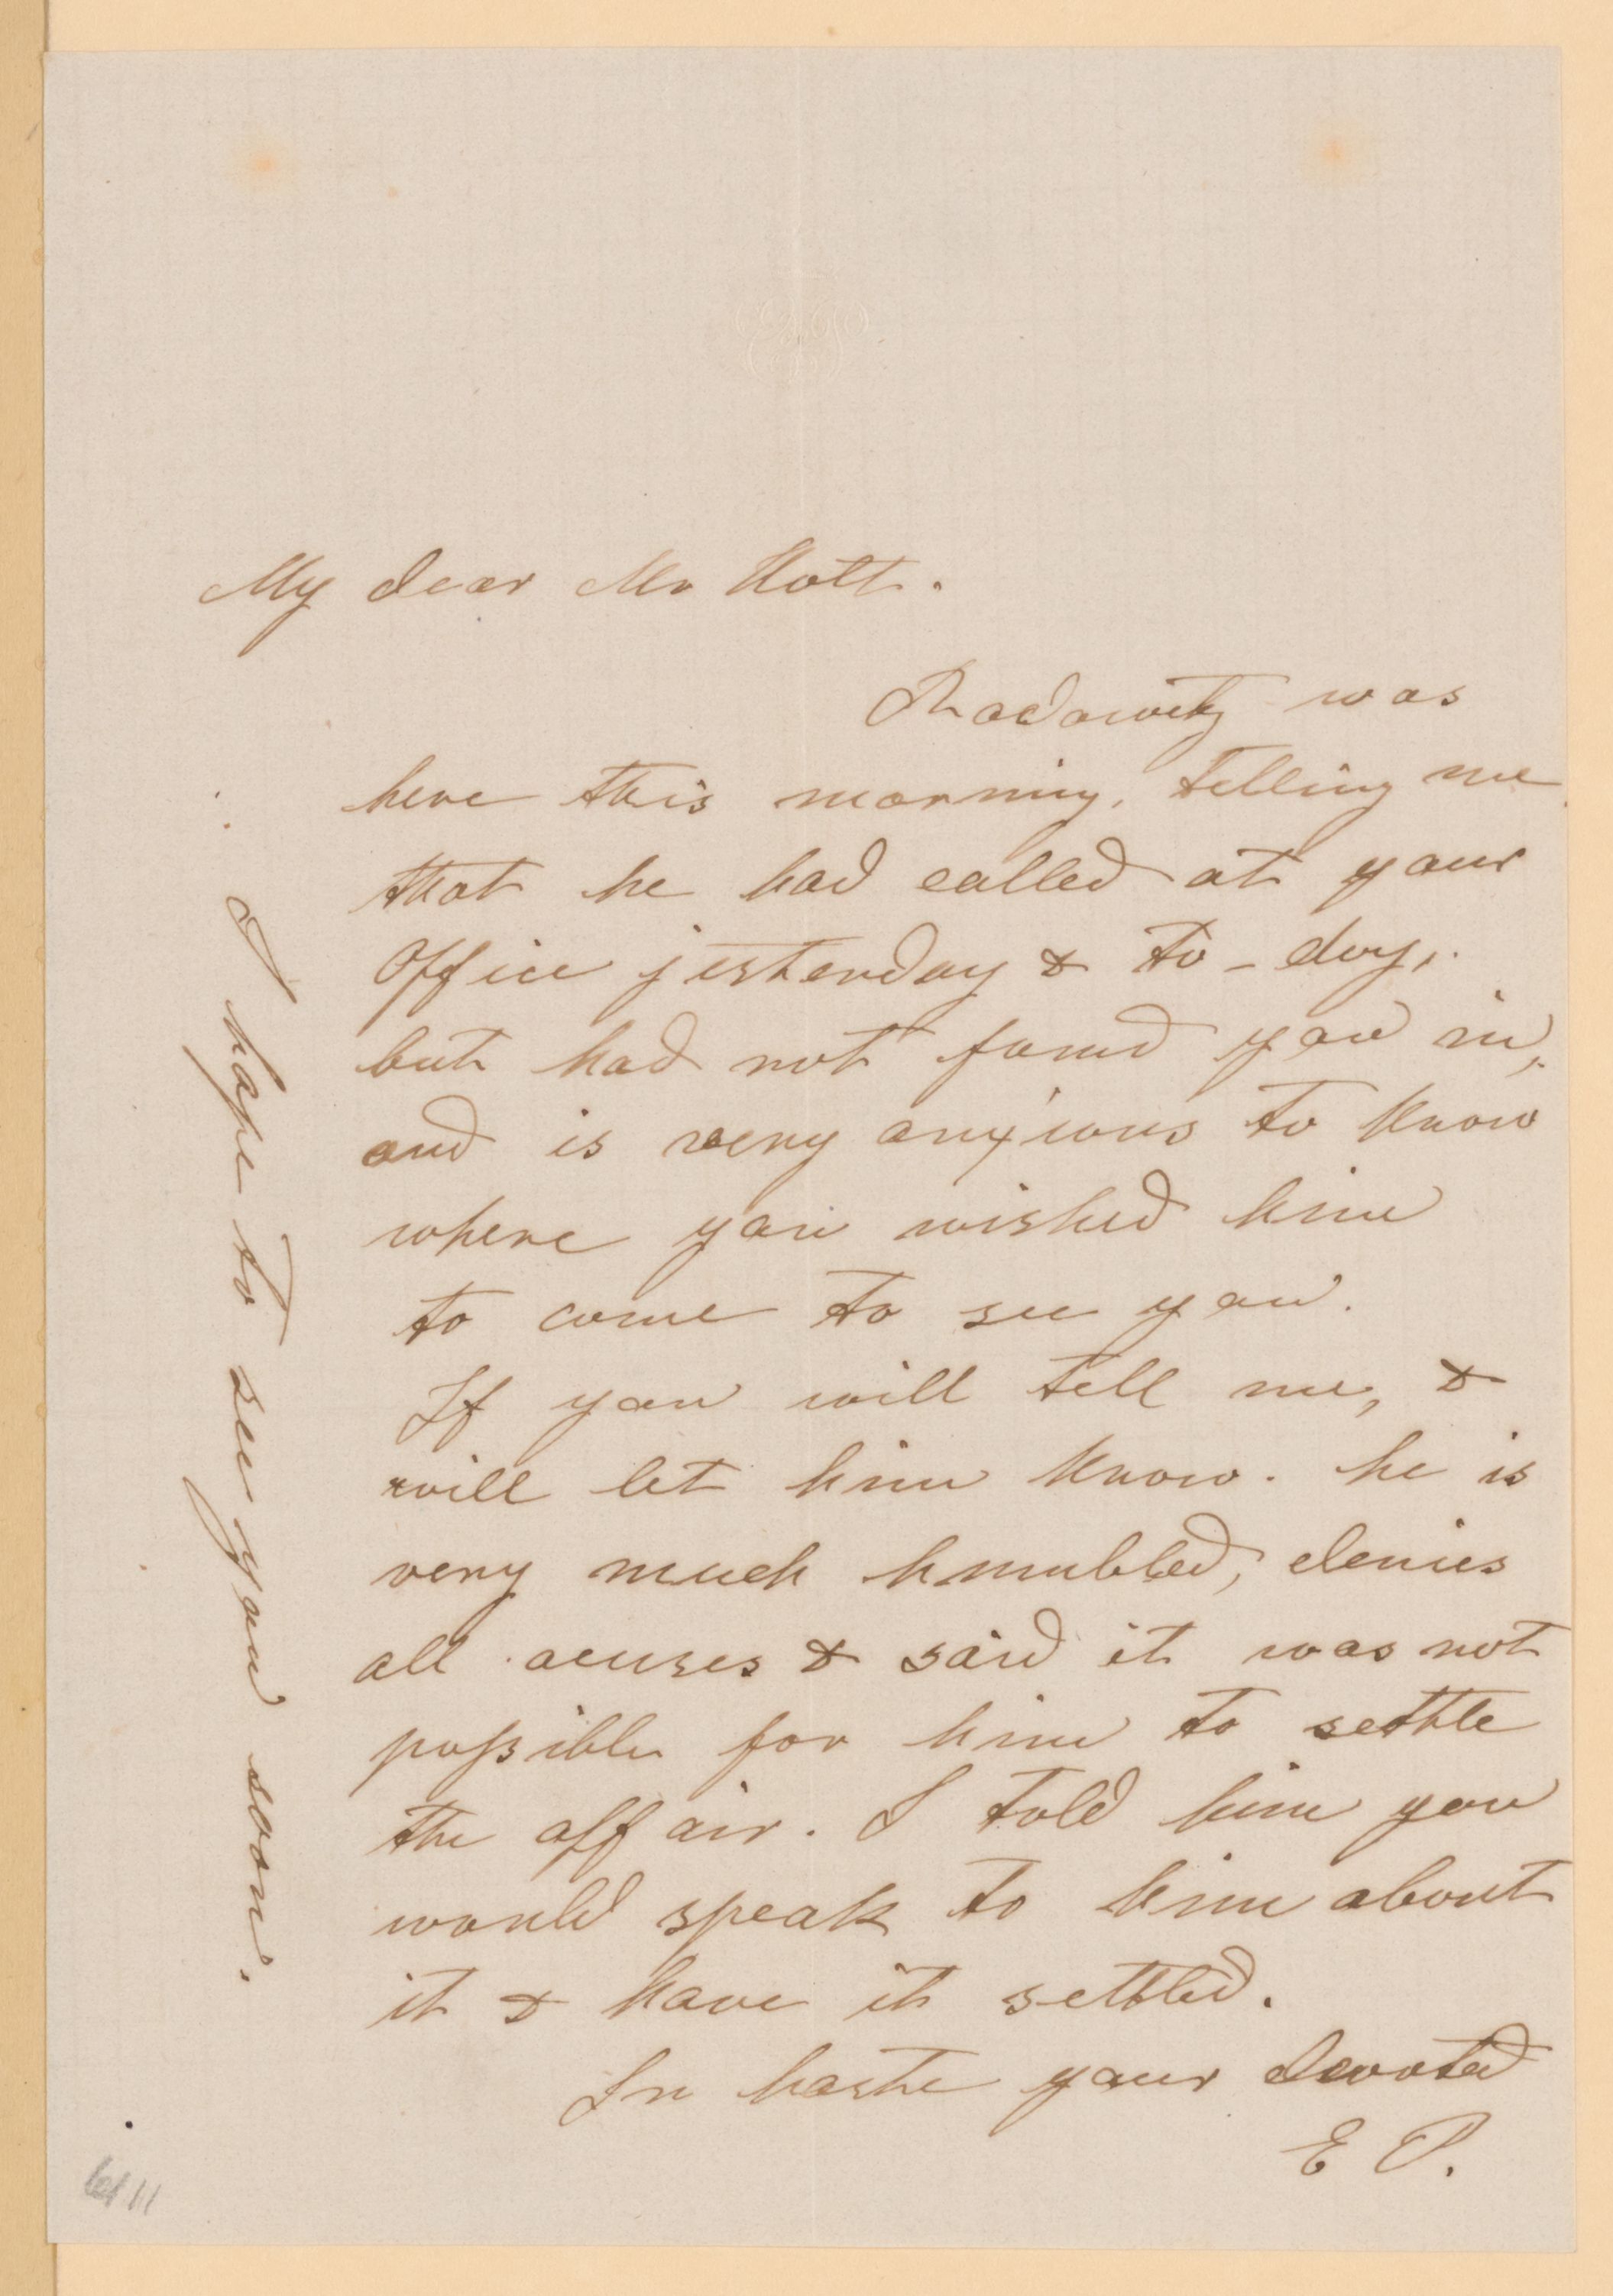 My dear Mr Holt.
Radowitz was
here this morning, telling me
that he had called at your
Office jesterday & to-day,
but had not found you in,
and is very anxious to know
where you wished him
to come to see you.
If you will tell me, &
will let him know. he is
very much humbled, denies
all acuses & said it was not
possible for him to settle
the affair. I told him you
would speak to him about
it & have it settled.
In haste your devoted
E P.
I hope to see you soon.